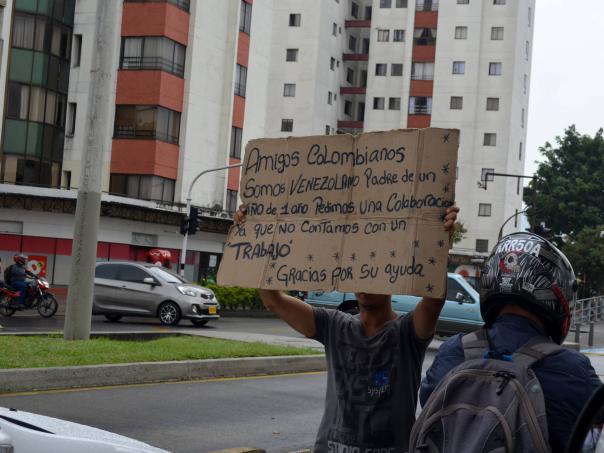 Amigos Colombianos
Somos VENEZOLANO Padre de un
Niño de 1 año Pedimos una Colaboracio
Ya que NO Contamos con un
"TRABAJO"
Gracias por su ayuda
KRR50A